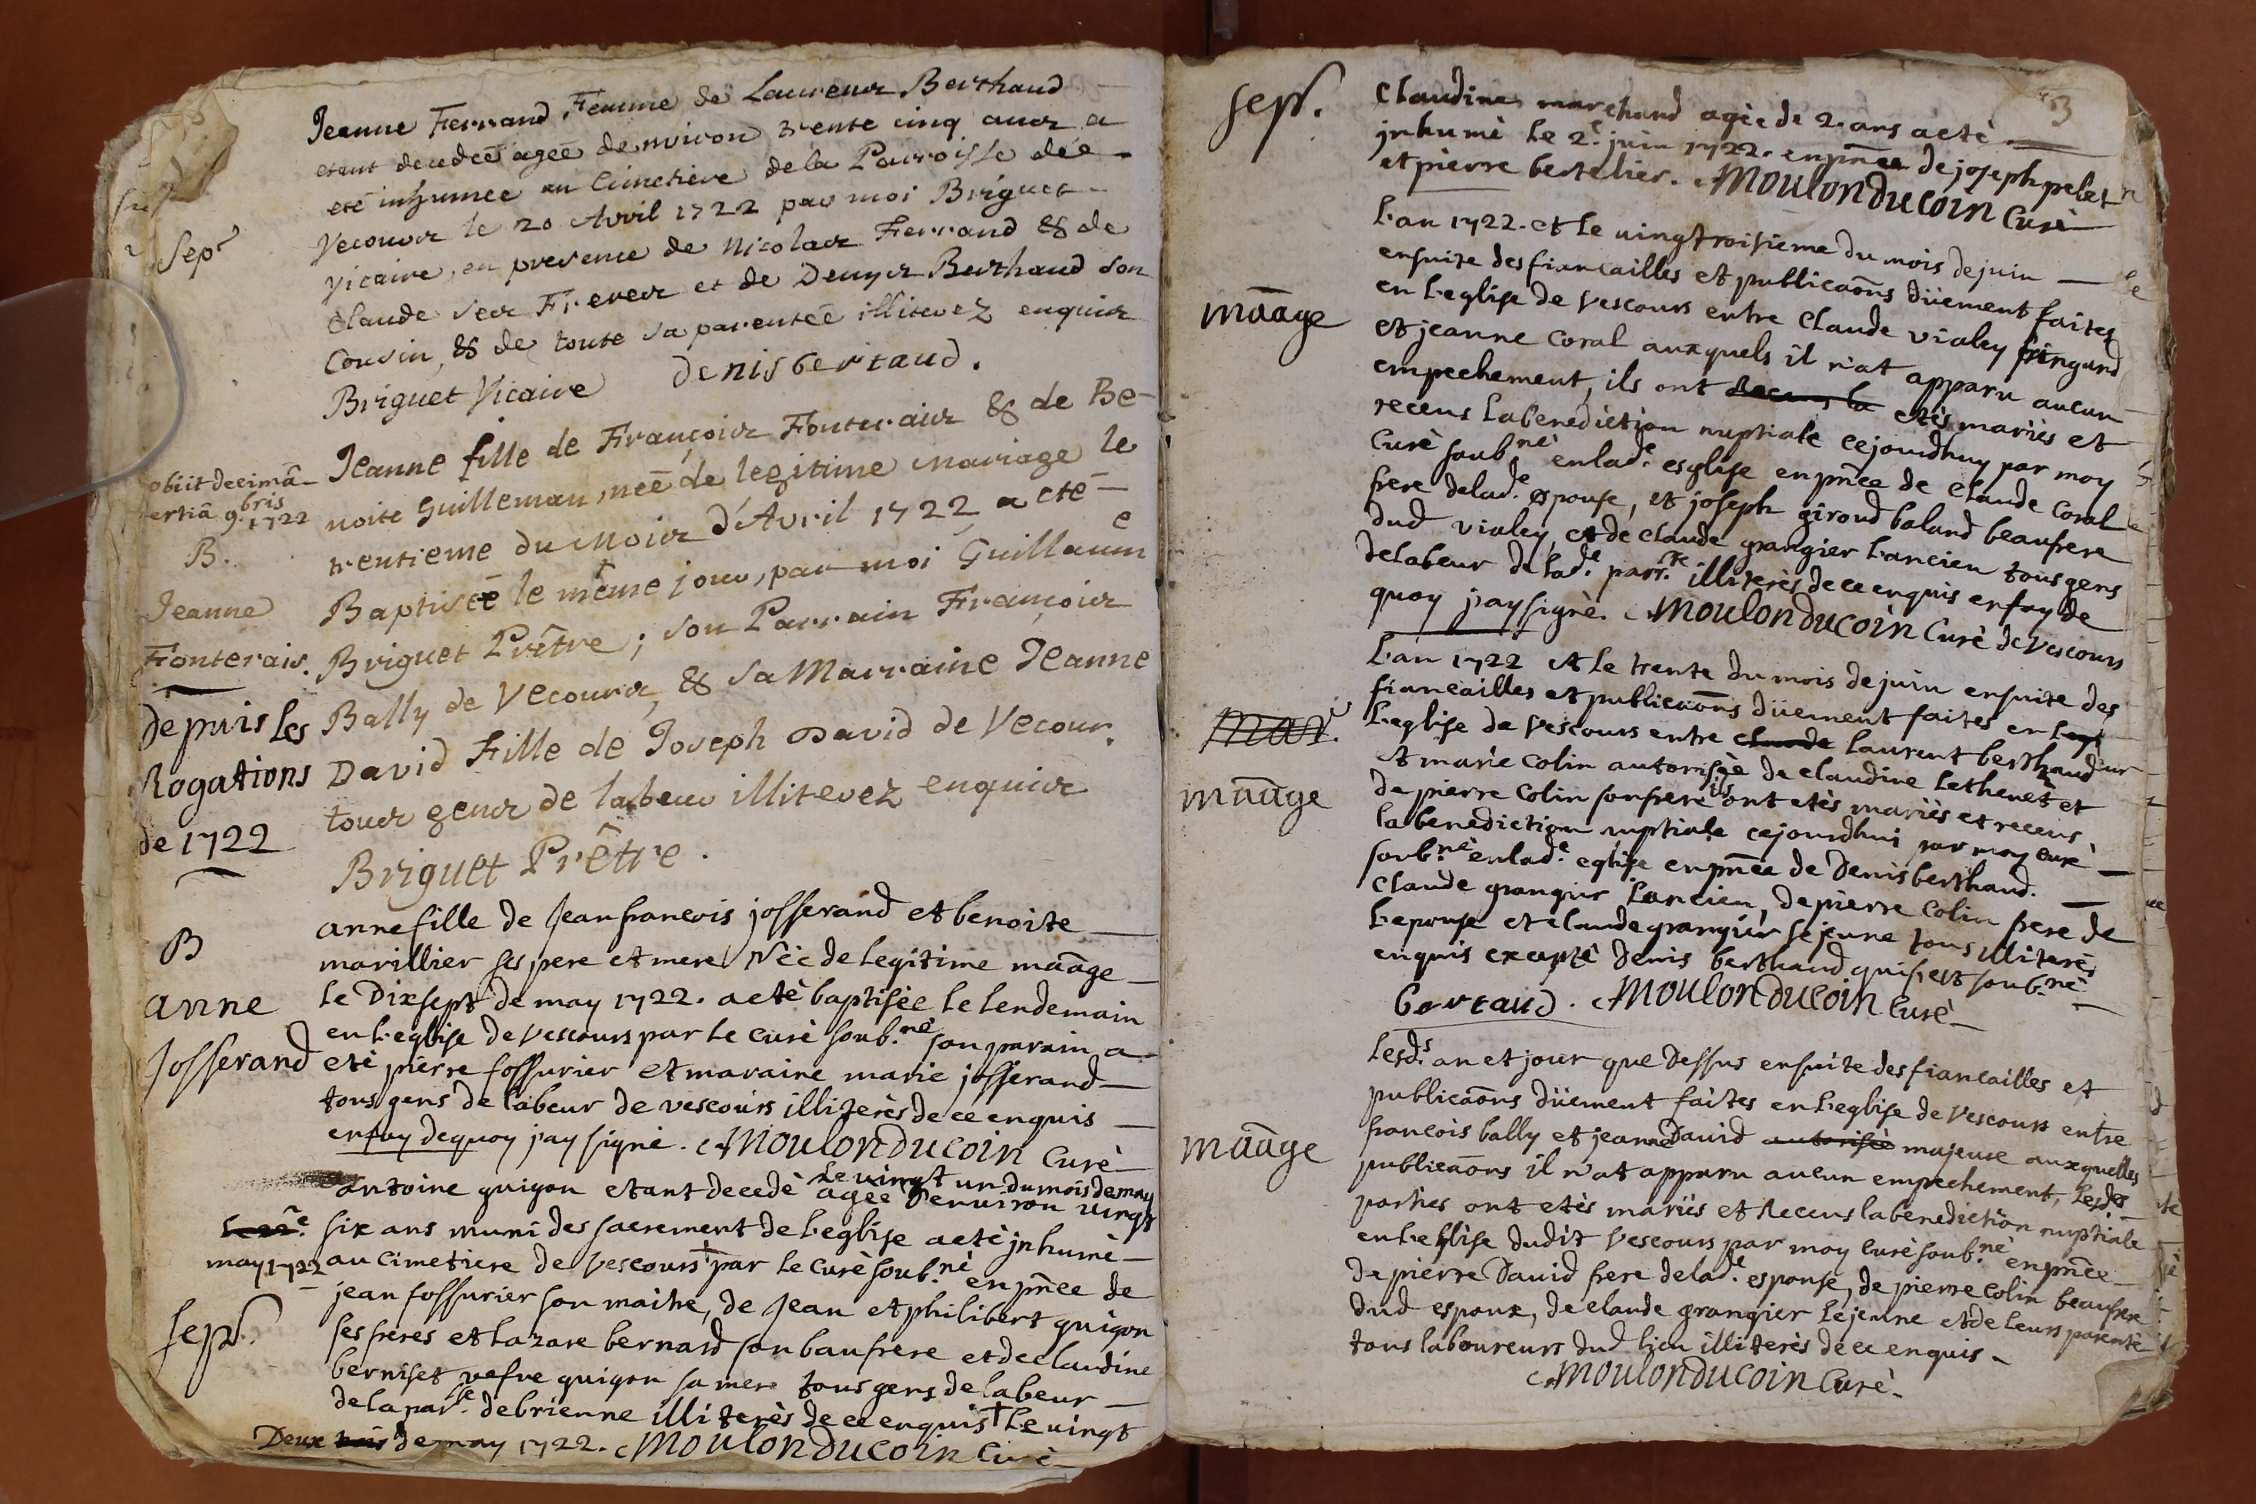 Jeanne Ferrand Femme de Laurens Berthaud
etant decedeé ageé denviron trente cinq ans a
eté inhumeé au Cimetiere de la Parroisse de
Sep.r
Vecours le 20 Avril 1722 par moi Briguet
Vicaire, en presence de Nicolas Ferrand & de
Claude ses Freres et de Denys Berthaud son
Cousin, & de toute sa parenteé illiterez enquis
Briguet Vicaire denis bertaud.
obiit decimâ
tertiâ 9.bris 1722
B.
Jeanne
Fonterais.
Jeanne fille de François Fonterais & de Be-
noite Guilleman, neé de legitime mariage le
trentieme du mois d'Avril 1722 a eté
Baptiseé le même jour, par moi Guillaume
Briguet Prêtre; son Parrain François
Bally de Vecours, & sa Marraine Jeanne
David Fille de Joseph David de Vecour.
tous gens de labeur illiterez enquis
Briguet Prêtre.
depuis les
Rogations
de 1722
B
anne
Josserand
anne fille de Jean francois josserand et benoite
marillier ses pere et mere Neè de legitime maãge
le Dixsept de may 1722. a etè baptisèe le lendemain
en l'eglise de vescours par le curè soub.nè son parain a
etè pierre fossurier et maraine marie josserand
tous gens de labeur de vescours illiterès de ce enquis
en foy de quoy jay signè. Moulonducoin Curè
le vingt un du mois de may
antoine guigon etant decedè agèe d'environ vingt
may 1722
six ans muni des sacrement de l'eglise a etè jnhumè
au cimetiere de Vescours † par le curè soub.nè en pñce de
sepr.
jean fossurier son maitre, de Jean et philibert guigon
ses freres et lazare bernard son baufrere et de claudine
berniset vefve guigon sa mere tous gens de labeur
de la par.sse de brienne illiterès de ce enquis † Le vingt
Deux trois de may 1722. Moulonducoin Curè
3
sepr.
Claudine marchand agèe de 2. ans a etè
jnhumè le 2.e juin 1722. en pñce de joseph pelet
et pierre bertelier. Moulonducoin Curè
maãge
L'an 1722. et le uingtroisieme du mois de juin
ensuite des fiancailles et publicaõns düement faites
en l'eglise de Vescours entre Claude vialey fringand
et jeanne Coral auxquels il n'at apparu aucun
empechement, ils ont Receus la etès mariès et
receus la benediction nuptiale cejourdhuy par moy
Curè soub.nè en lad.e esglise en pñce de Claude Coral
frere de lad.e epouse, et joseph giroud baland beaufrere
dud vialey, et de Claude grangier l'ancien tous gens
de labeur de lad.e parr.sse illiterès de ce enquis en foy de
quoy jay signè. Moulonducoin Curè de Vescours
mar.
maãge
L'an 1722 et le trente du mois de juin ensuite des
fiancailles et publicaõns düement faites en leg
l'eglise de Vescours entre claude laurent berthaud
et marie Colin autorisèe de claudine lethenet et
de pierre Colin son frere ils ont etès mariès et receus
la benediction nuptiale cejourdhui par moy curè
soub.nè en lad.e eglise en pñce de Denis berthaud.
claude grangier l'ancien, de pierre Colin frere de
l'epouse et claude grangier le jeune tous illiterès
enquis exceptè Denis berthaud qui s'est soub.nè
bertaud. Moulonducoin Curè
maãge
Lesd.s an et jour que Dessus ensuite des fiancailles et
publicaõns düement faites en l'eglise de Vescours entre
francois bally et jeanne David autorisèe majeure auxquelles
publicaõns il n'at apparu aucun empechement, lesd.es
parties ont etès mariès et Receus la benediction nuptiale
en l'eglise dudit Vescours par moy Curè soub.nè en pñce
de pierre David frere de lad.e espouse, de pierre Colin beaufrere
dud espoux, de claude grangier le jeune et de leurs parentè
tous laboureurs dud lieu illiterès de ce enquis
Moulonducoin Curè.